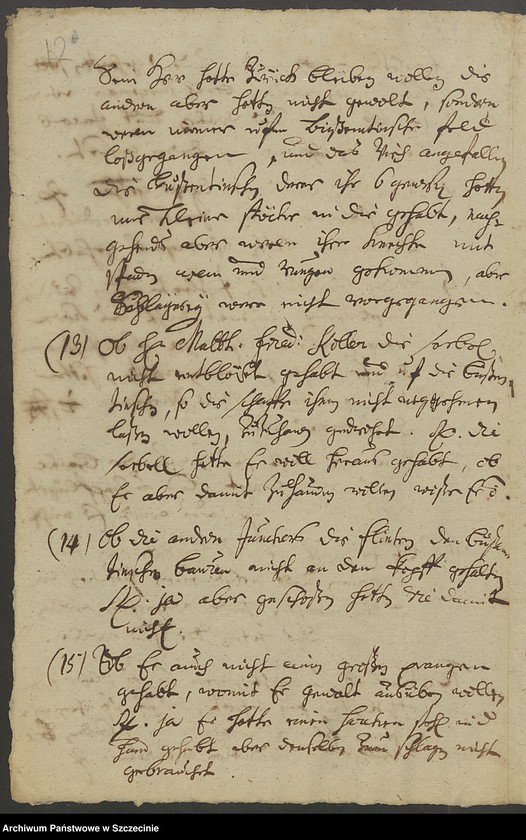 12
Sein Herr hette zurück bleiben wollen die
andern aber hetten nicht gewolt, sondern
weren immer ufm feld
loßgegangen, und das Vieh angefallen
die , derer ihr 6 gewesen hetten
nur kleine stöcke in die gehabt, nach-
gehends aber weren ihre knechte mit
und Zungen gekommen, aber
Schlägerey were nicht vorgegangen.
(13) Ob Hr. Matth. Frid: Koller die sarbel
nicht entblößt gehabt und uf die
, so die schaffe ihm nicht wegnehmen
laßen wollen, zuzuhauen gedrohet. Rp. die
sarbell hette Er woll heraus gehabt, ob
Er aber damit zuhauen wollen wiße Er
(14) Ob die andern Junckers die flinten den
bauren nicht an den Kopff gehalten
Rp. ja aber geschoßen hetten sie damit
nicht.
(15) Ob Er auch nicht einen großen prangen
gehabt, womit Er gewalt außüben wollen
Rp. ja Er hette einen stock in der
hand gehabt aber denselben zum schlagen nicht
gebrauchet.
Archiwum Państwowe w Szczecinie